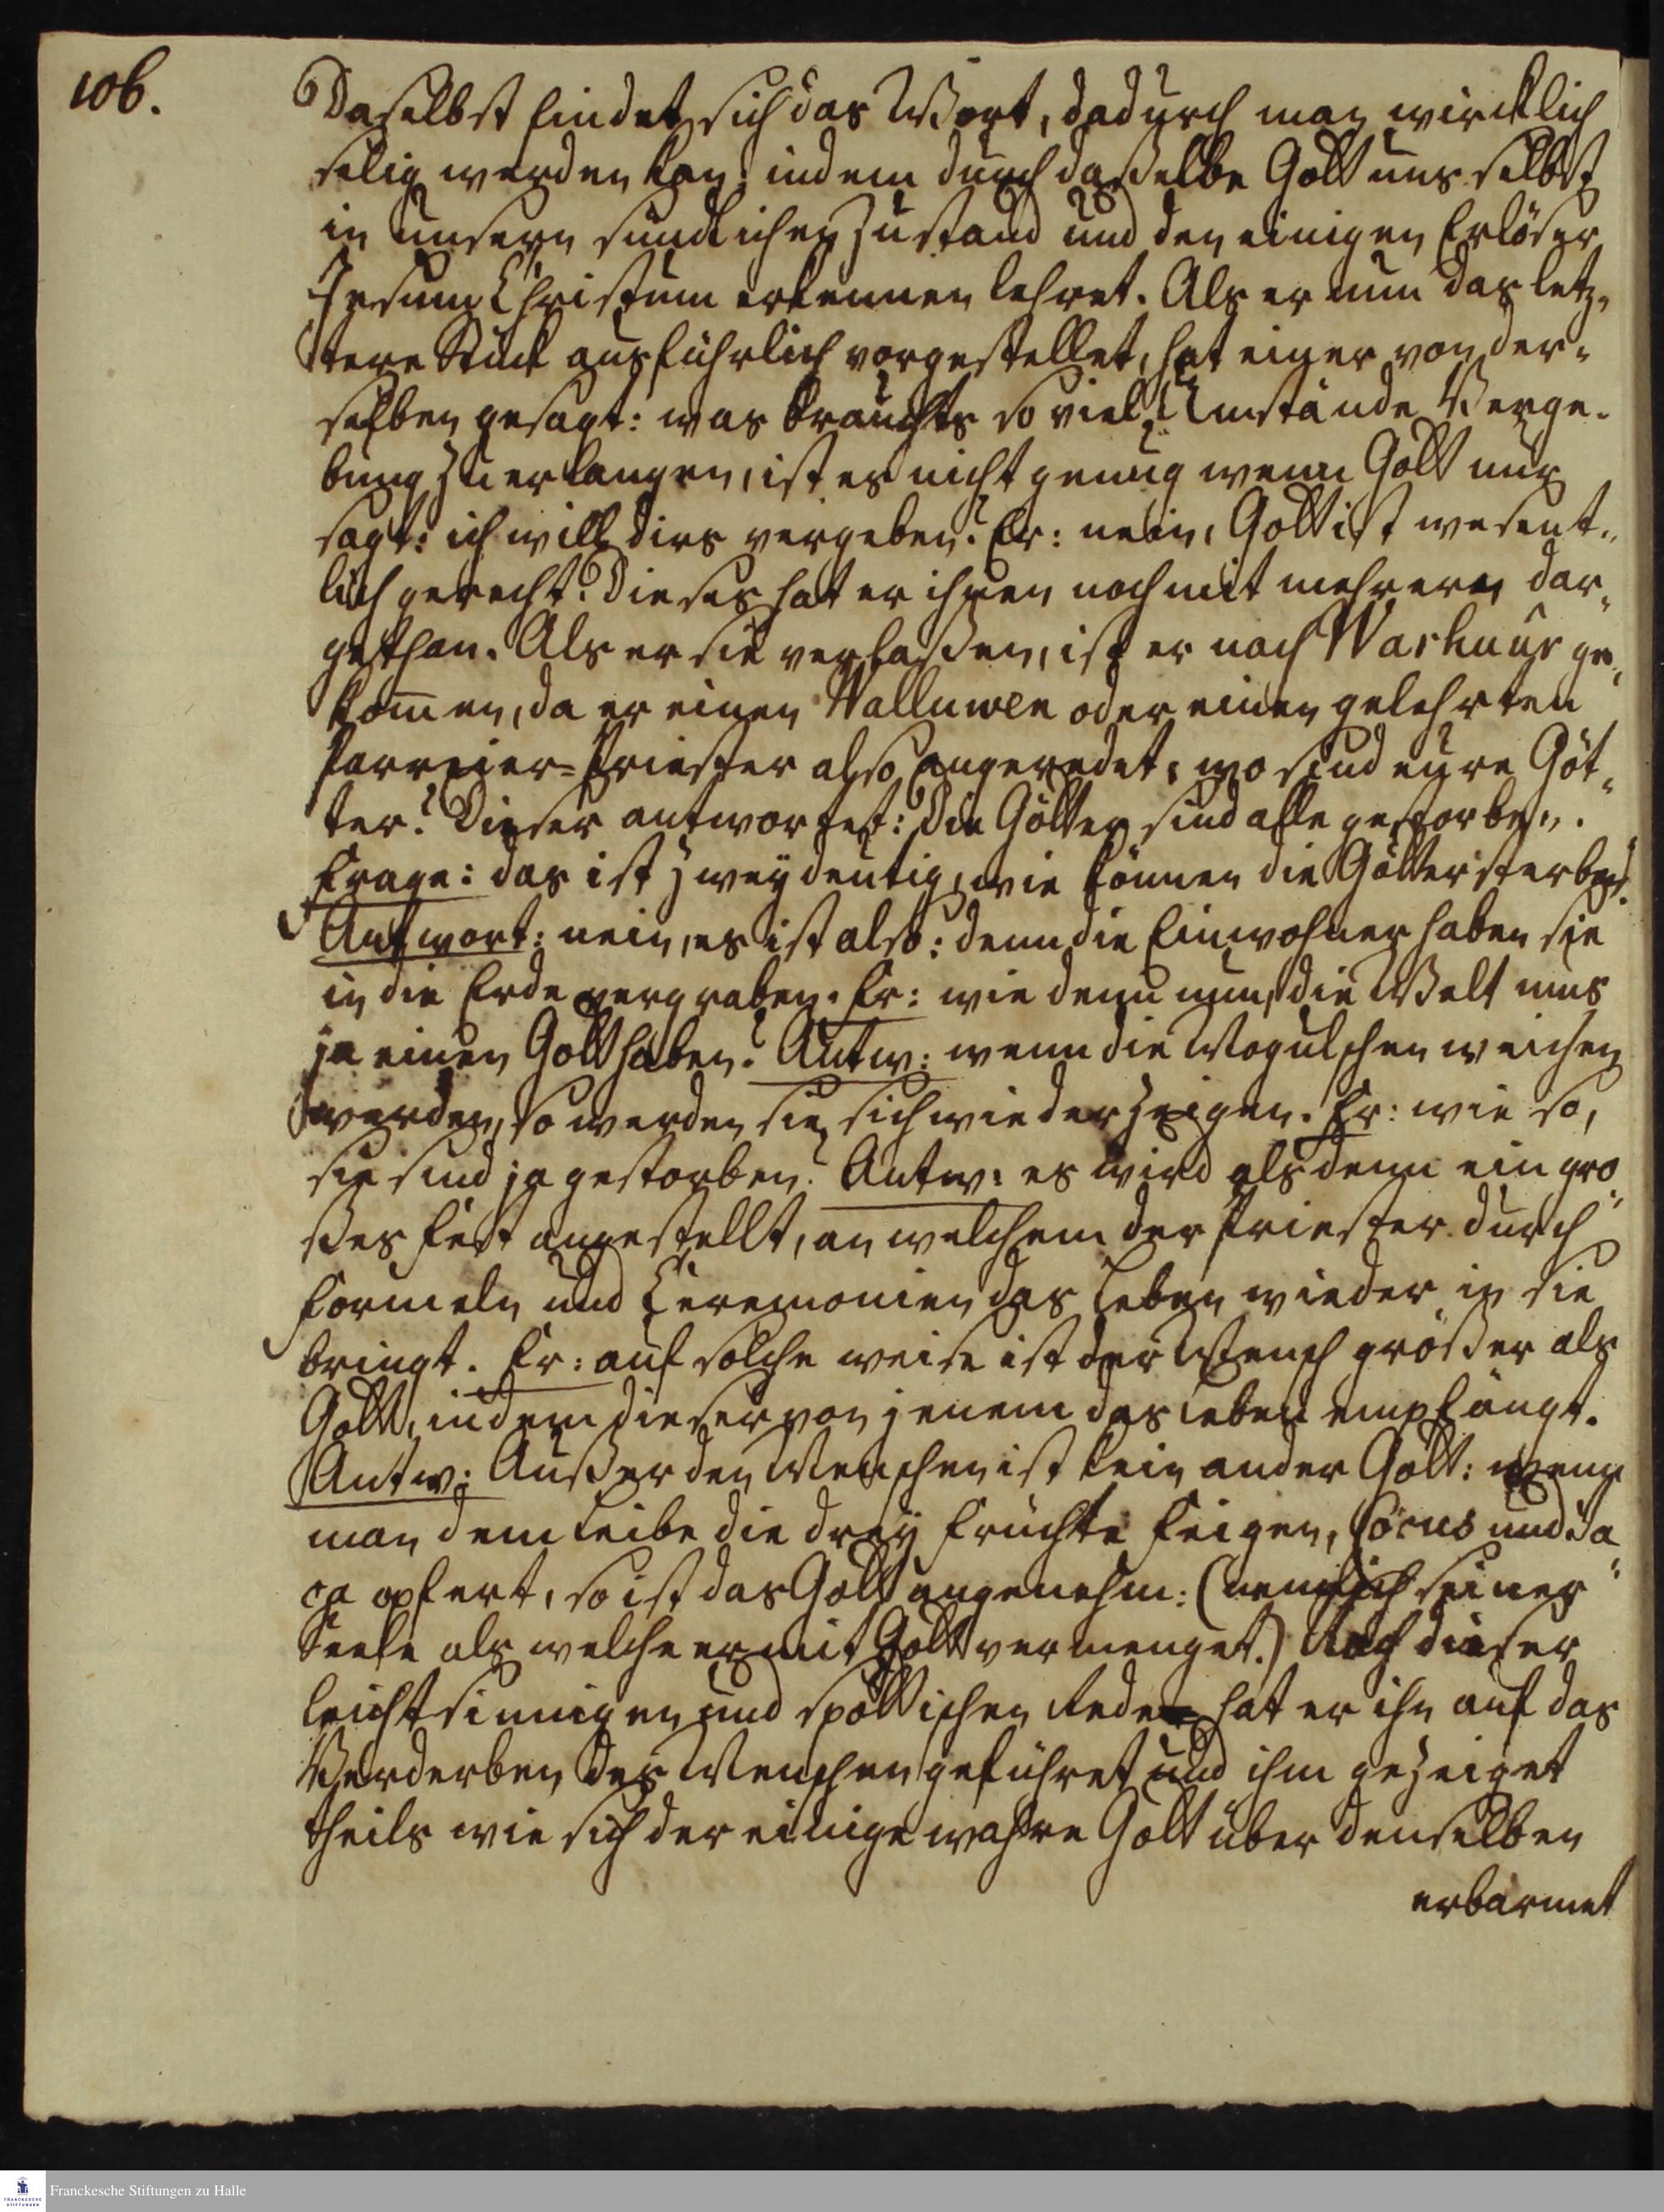 106.
Daselbst findet sich das Wort, dadurch man wircklich
selig werden kan, indem durch daßelbe Gott uns selbst
in unsern sündlichen Zustand und den einigen Erlöser
Jesum Christum erkennen lehret. Als er nun das letz„
tere Stück ausführlich vorgestellet, hat einer von der„
selben gesagt: was brauchts so viel Umstände Verge„
bung zu erlangen, ist es nicht genug wenn Gott nur
sagt: ich will dirs vergeben? Er: nein, Gott ist wesent„
lich gerecht. Dieses hat er ihnen noch mit mehreren dar„
gethan. Als er sie verlaßen, ist er nach Warhuur ge„
kom̄en, da er einen Walluwen oder einen gelehrten
Parreier=Priester also angeredet, wo sind eure Göt„
ter? Dieser antwortet: Die Götter sind alle gestorben.
Frage: das ist zweydeutig, wie können die Götter sterben?
Antwort: nein, es ist also: denn die Einwohner haben sie
in die Erde vergraben. Er: wie denn nun, die Welt mus
ja einen Gott haben? Antw: wenn die Mogulschen weichen
werden, so werden sie sich wieder zeigen. Er: wie so,
sie sind ja gestorben? Antw: es wird alsdenn ein gro„
ßes Fest angestellt, an welchem der Priester durch
Formeln und Ceremonien das Leben wieder in sie
bringt. Er: auf solche weise ist der Mensch größer als
Gott, indem dieser von jenem das Leben empfängt.
Antw: Außer den Menschen ist kein ander Gott: wenn
man dem Leibe die drey Früchte Feigen, Cocus und Ja„
ca opfert, so ist das Gott angenehm: (nemlich seiner
Seele als welche er mit Gott vermenget.) Nach dieser
leichtsinnigen und spöttischen Rede hat er ihn auf das
Verderben des Menschen geführet und ihm gezeiget
theils wie sich der einige wahre Gott über denselben
erbarmet
Franckesche Stiftungen zu Halle
FRANCKESCHE
STIFTUNGEN